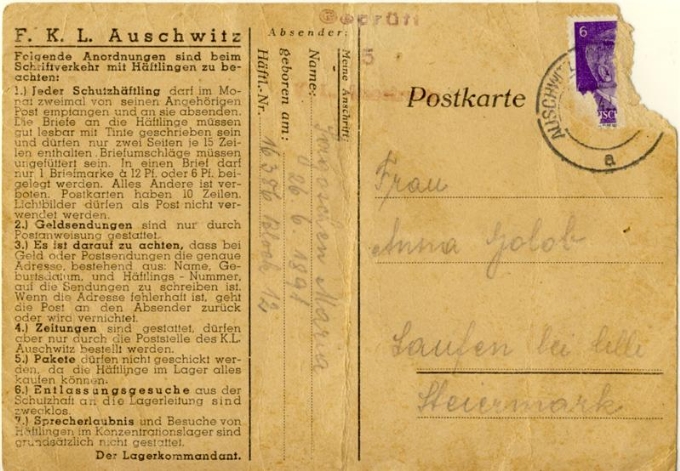 F. K. L. Auschwitz
Folgende Anordnungen sind beim
Schriftverkehr mit Häftlingen zu be-
achten:
1.) Jeder Schutzhäftling darf im Mo-
nat zweimal von seinen Angehörigen
Post empfangen und an sie absenden.
Die Briefe an die Häftlinge müssen
gut lesbar mit Tinte geschrieben sein
und dürfen nur zwei Seiten je 15 Zei-
len enthalten. Briefumschläge müssen
ungefüttert sein. In einen Brief darf
nur 1 Briefmarke à 12 Pf. oder 6 Pf. bei-
gelegt werden. Alles Andere ist ver-
boten. Postkarten haben 10 Zeilen.
Lichtbilder dürfen als Post nicht ver-
wendet werden.
2.) Geldsendungen sind nur durch
Postanweisung gestattet.
3.) Es ist darauf zu achten, dass bei
Geld oder Postsendungen die genaue
Adresse, bestehend aus: Name, Ge-
burtsdatum, und Häftlings - Nummer,
auf die Sendungen zu schreiben ist.
Wenn die Adresse fehlerhaft ist, geht
die Post an den Absender zurück
oder wird vernichtet.
4.) Zeitungen sind gestattet, dürfen
aber nur durch die Poststelle des K.L.
Auschwitz bestellt werden.
5.) Pakete dürfen nicht geschickt wer-
den, da die Häftlinge im Lager alles
kaufen können.
6.) Entlassungsgesuche aus der
Schutzhaft an die Lagerleitung sind
zwecklos.
7.) Sprecherlaubnis und Besuche von
Häftlingen im Konzentrationslager sind
grundsätzlich nicht gestattet.
Der Lagerkommandant.
Absender:
Meine Anschrift:
Name: Maria
geboren am: 6. 1898
Häftl.-Nr. 16386 Block 12
Geprüft
5
Postkarte
6
AUSCHWITZ
a
Frau
Anna Golob
Laufen bei Cilli
Steiermark